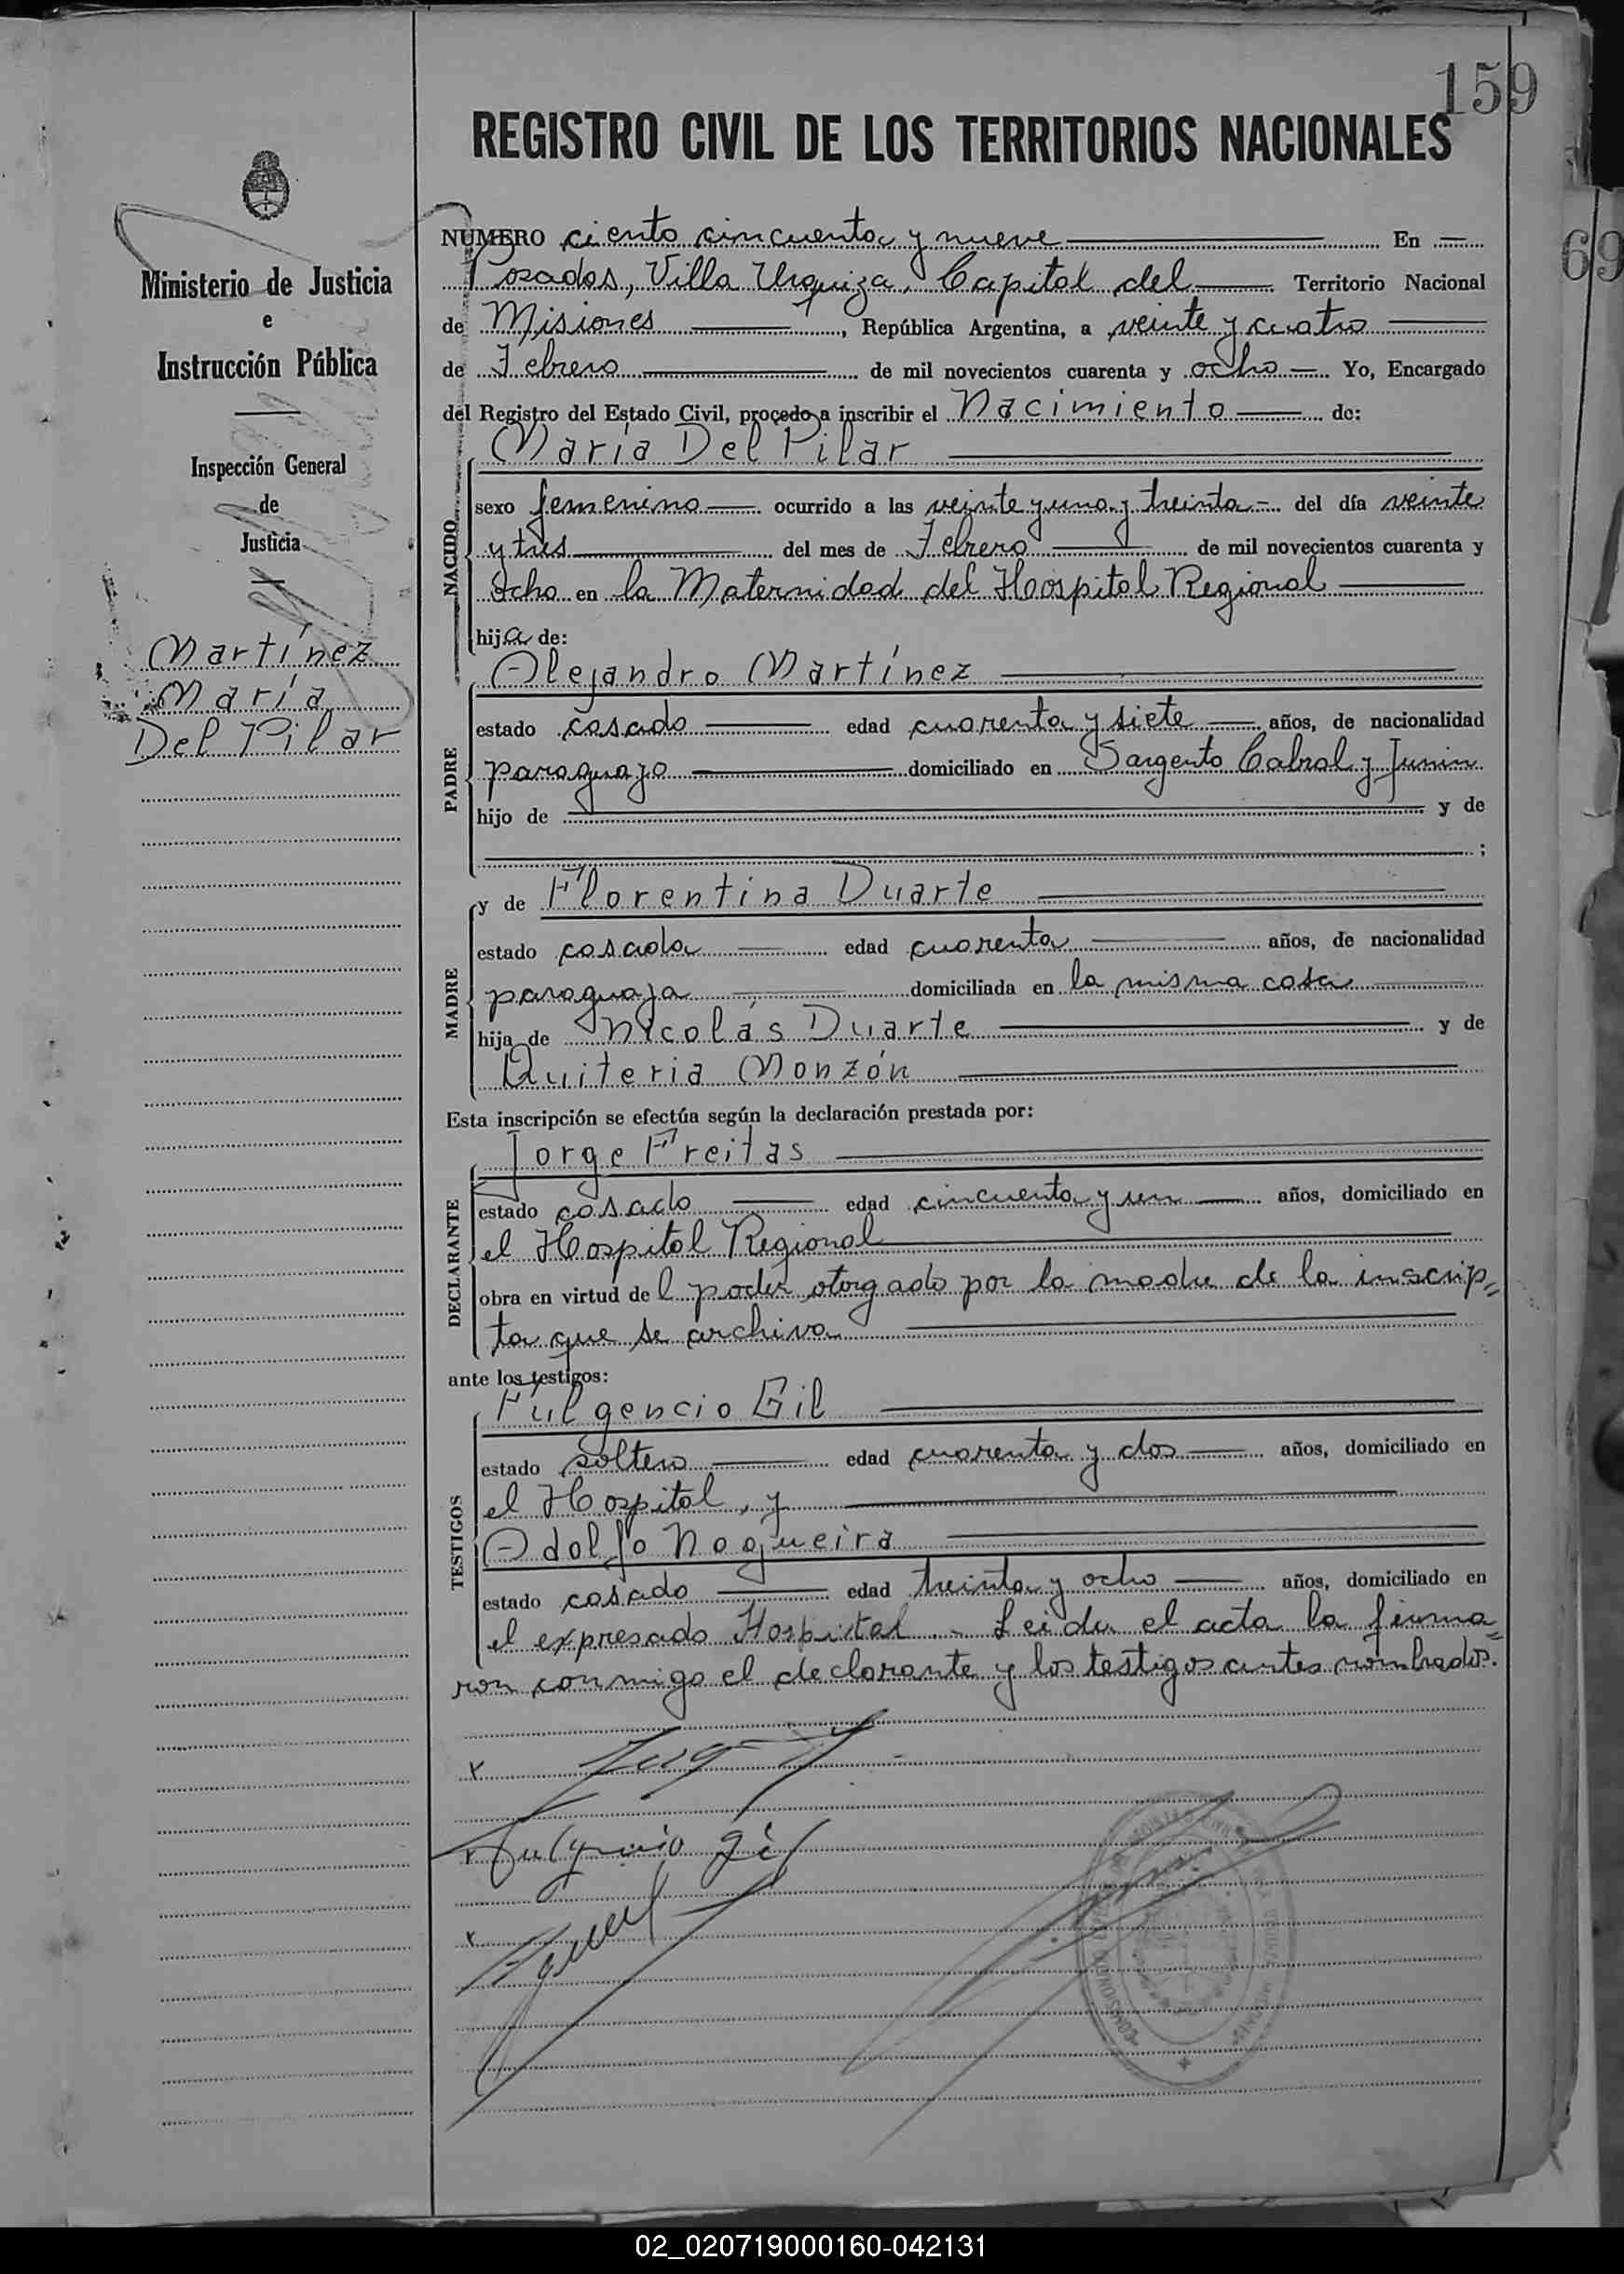 159
REGISTRO CIVIL DE LOS TERRITORIOS NACIONALES
69
Ministerio de Justicia
e
Instrucción Pública
Inspección General
de
Justicia
Martínez
María
Del Pilar
NUMERO ciento cincuenta y nueve En
Posadas, Villa Urquiza, Capital del Territorio Nacional
de Misiones, República Argentina, a veinte y cuatro
de Febrero de mil novecientos cuarenta y ocho Yo, Encargado
del Registro del Estado Civil, procedo a inscribir el Nacimiento de:
María Del Pilar
NACIDO
sexo femenino ocurrido a las veinte y una y treinta del día veinte
y tres del mes de Febrero de mil novecientos cuarenta y
ocho en la Maternidad del Hospital Regional
hija de:
Alejandro Martínez
PADRE
estado casado edad cuarenta y siete años, de nacionalidad
paraguayo domiciliado en Sargento Cabral y Junin
hijo de y de
;
y de Florentina Duarte
MADRE
estado casada edad cuarenta años, de nacionalidad
paraguaya domiciliada en la misma casa
hija de Nicolás Duarte y de
Quiteria Monzón
Esta inscripción se efectúa según la declaración prestada por:
Jorge Freitas
DECLARANTE
estado casado edad cincuenta y un años, domiciliado en
el Hospital Regional
obra en virtud del poder otorgado por la madre de la inscrip=
ta que se archiva
ante los testigos:
Fulgencio Gil
TESTIGOS
estado soltero edad cuarenta y dos años, domiciliado en
el Hospital, y
Adolfo Nogueira
estado casado edad treinta y ocho años, domiciliado en
el expresado Hospital. - Leida el acta la firma=
ron conmigo el declarante y los testigos antes nombrados.
x
x Fulgencio Gil
x
02_020719000160-042131